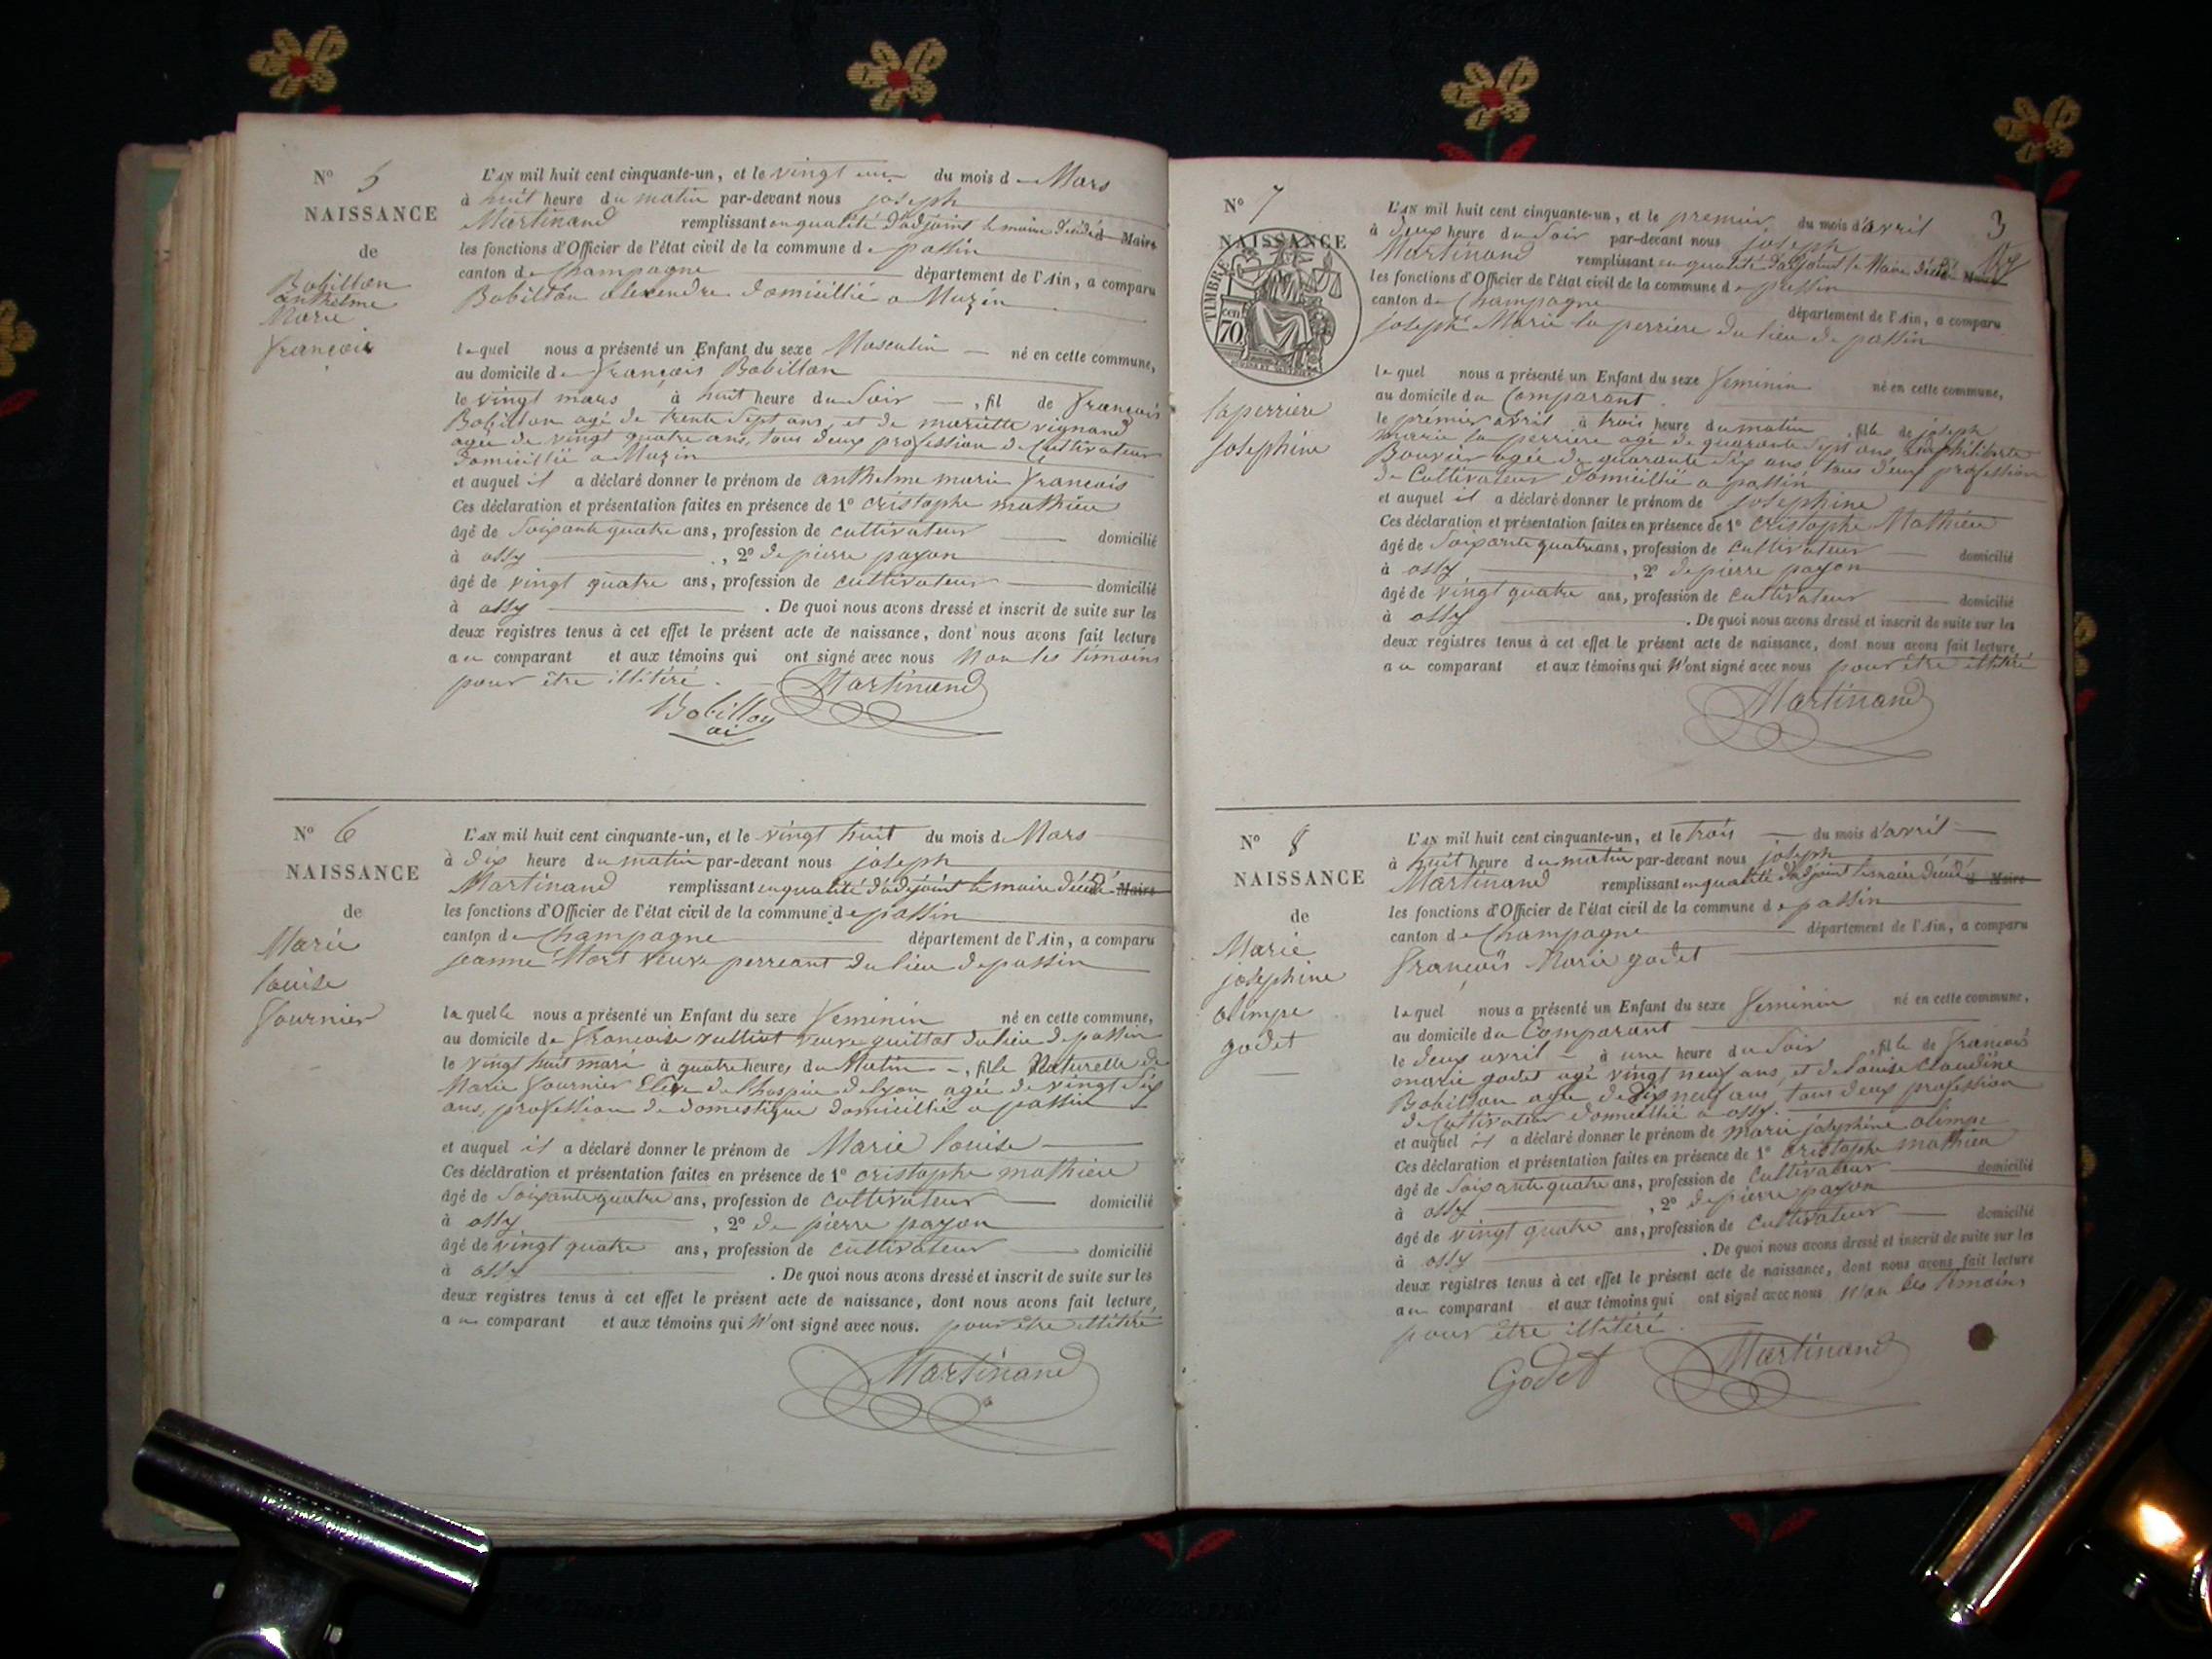 N° 5
NAISSANCE
de
Bobillon
anthelme
Marie
françois
L'AN mil huit cent cinquante-un, et le vingt un du mois d Mars
à huit heure du matin par-devant nous joseph
Martinand remplissant en qualité d'adjoint le maire décédé Maire
les fonctions d'Officier de l'état civil de la commune de passin
canton de Champagne département de l'Ain, a comparu
Bobillon alexendre domicillié a Muzin
lequel nous a présenté un Enfant du sexe Masculin né en cette commune,
au domicile de françois Bobillon
le vingt mars à huit heure du Soir, fil de françois
Bobillon agé de trente Sept ans, et de mariette vignand
agée de vingt quatre ans, tous deux profession de Cultivateur
domicillié a Muzin
et auquel il a déclaré donner le prénom de anthelme marie françois
Ces déclaration et présentation faites en présence de 1° cristophe mathieu
âgé de Soixante quatre ans, profession de cultivateur domicilié
à ossy, 2° de pierre payon
âgé de vingt quatre ans, profession de cultivateur domicilié
à ossy. De quoi nous avons dressé et inscrit de suite sur les
deux registres tenus à cet effet le présent acte de naissance, dont nous avons fait lecture
au comparant et aux témoins qui ont signé avec nous Non les témoins
pour être illitéré. Martinand
Bobillon
N° 6
NAISSANCE
de
Marie
louise
fournier
L'AN mil huit cent cinquante-un, et le vingt huit du mois de Mars
à dix heure du matin par-devant nous joseph
Martinand remplissant en qualité d'adjoint le maire décédé Maire
les fonctions d'Officier de l'état civil de la commune de passin
canton de Champagne département de l'Ain, a comparu
jeanne Mort veuve perreant du lieu de passin
laquelle nous a présenté un Enfant du sexe feminin né en cette commune,
au domicile de françoise vulliot veuve quittot du lieu de passin
le vingt huit mars à quatre heures du Matin, fille Naturelle de
Marie fournier Elève de l'hospice de lyon agée de vingt dix
ans, profession de domestique domicillié a passin
et auquel il a déclaré donner le prénom de Marie louise
Ces déclaration et présentation faites en présence de 1° cristophe mathieu
âgé de Soixante quatre ans, profession de cultivateur domicilié
à ossy, 2° de pierre payon
âgé de vingt quatre ans, profession de cultivateur domicilié
à ossy. De quoi nous avons dressé et inscrit de suite sur les
deux registres tenus à cet effet le présent acte de naissance, dont nous avons fait lecture,
au comparant et aux témoins qui N'ont signé avec nous. pour être illitéré
Martinand
3
N° 7
NAISSANCE
de
TIMBRE
70
laperriere
josephine
L'AN mil huit cent cinquante-un, et le premier du mois d'avril
à deux heure du Soir par-devant nous joseph
Martinand remplissant en qualité d'adjoint le Maire décédé Maire
les fonctions d'Officier de l'état civil de la commune de passin
canton de Champagne département de l'Ain, a comparu
joseph Marie la perriere du lieu de passin
lequel nous a présenté un Enfant du sexe feminin né en cette commune,
au domicile du Comparant
le prémier avril à trois heure du matin, fille de joseph
marie la perriere agé de quarante Sept ans, de philiberte
Bouvier agée de quarante Six ans, tous deux profession
de Cultivateur domicillié a passin
et auquel il a déclaré donner le prénom de josephine
Ces déclaration et présentation faites en présence de 1° Cristophe Mathieu
âgé de Soixante quatre ans, profession de cultivateur domicilié
à ossy, 2° de pierre payon
âgé de vingt quatre ans, profession de Cultivateur domicilié
à ossy. De quoi nous avons dressé et inscrit de suite sur les
deux registres tenus à cet effet le présent acte de naissance, dont nous avons fait lecture
au comparant et aux témoins qui N'ont signé avec nous pour être illitéré
Martinand
N° 8
NAISSANCE
de
Marie
josephine
olimpe
godet
L'AN mil huit cent cinquante-un, et le trois du mois d'avril
à huit heure du matin par-devant nous joseph
Martinand remplissant en qualité d'adjoint le maire décédé Maire
les fonctions d'Officier de l'état civil de la commune de passin
canton de Champagne département de l'Ain, a comparu
françois Marie godet
lequel nous a présenté un Enfant du sexe feminin né en cette commune,
au domicile du Comparant
le deux avril à une heure du Soir, fille de françois
marie godet agé vingt neuf ans, et de louise claudine
Bobillon agée de dix neuf ans, tous deux profession
de Cultivateur domicillié a ossy.
et auquel il a déclaré donner le prénom de marie joséphine olimpe
Ces déclaration et présentation faites en présence de 1° Cristophe mathieu
âgé de Soixante quatre ans, profession de Cultivateur domicilié
à ossy, 2° de pierre payon
âgé de vingt quatre ans, profession de Cultivateur domicilié
à ossy. De quoi nous avons dressé et inscrit de suite sur les
deux registres tenus à cet effet le présent acte de naissance, dont nous avons fait lecture
au comparant et aux témoins qui ont signé avec nous Non les témoins
pour être illitéré.
Godet Martinand